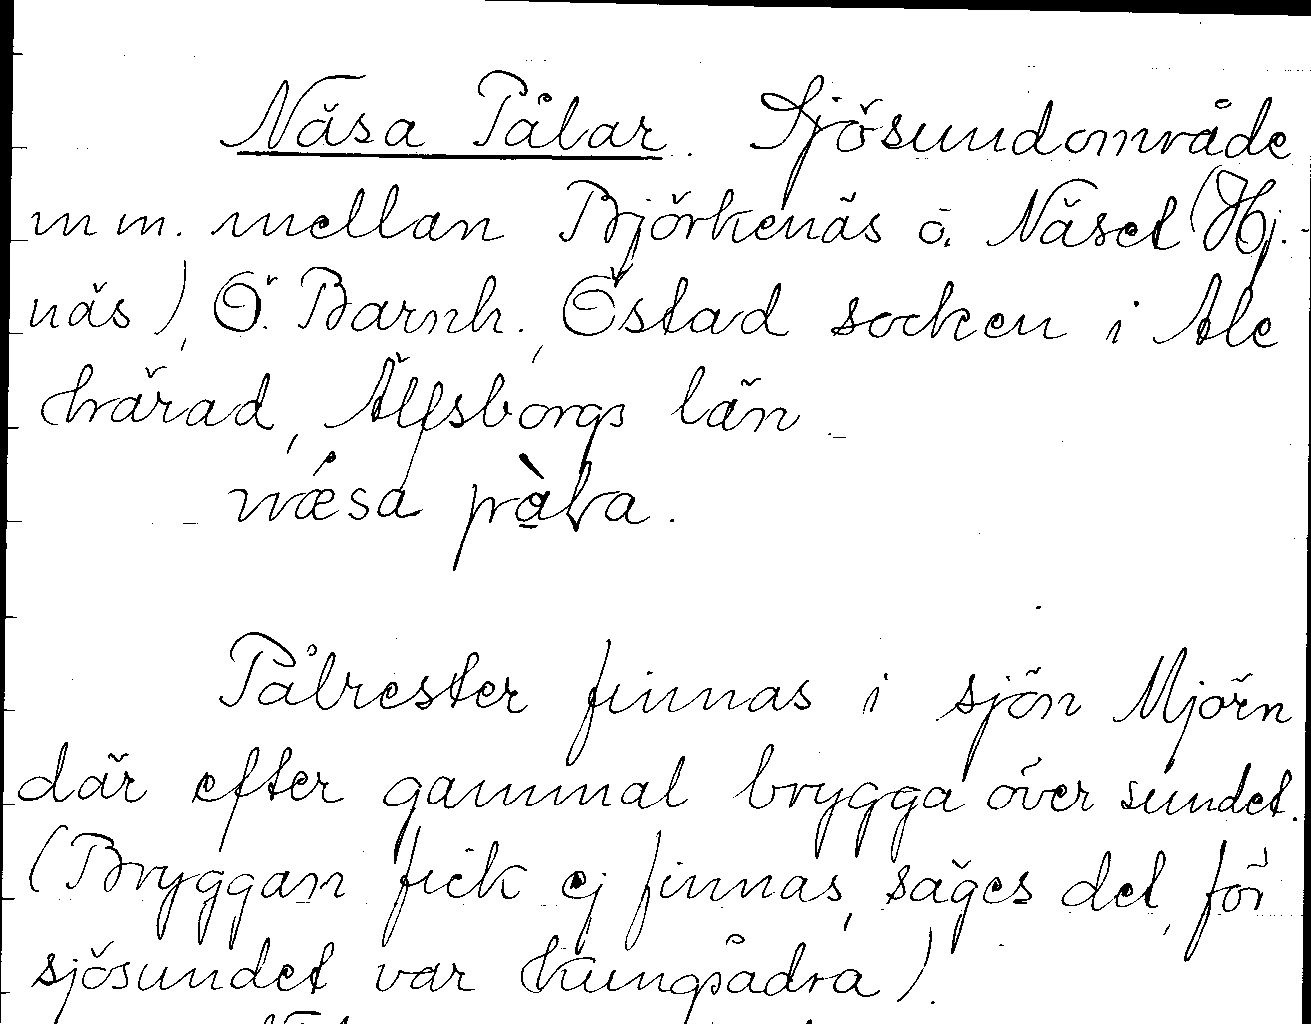 Näsa Pålar. Sjösundområde
m m. mellan Björkenäs o. Näset (Hj.-
näs), Ö. Barnh., Östad socken i Ale
härad, Älfsborgs län.
næ´sa på̀la.
Pålrester finnas i sjön Mjörn
där efter gammal brygga över sundet.
(Bryggan fick ej finnas, säges det, för
sjösundet var Kungsådra).